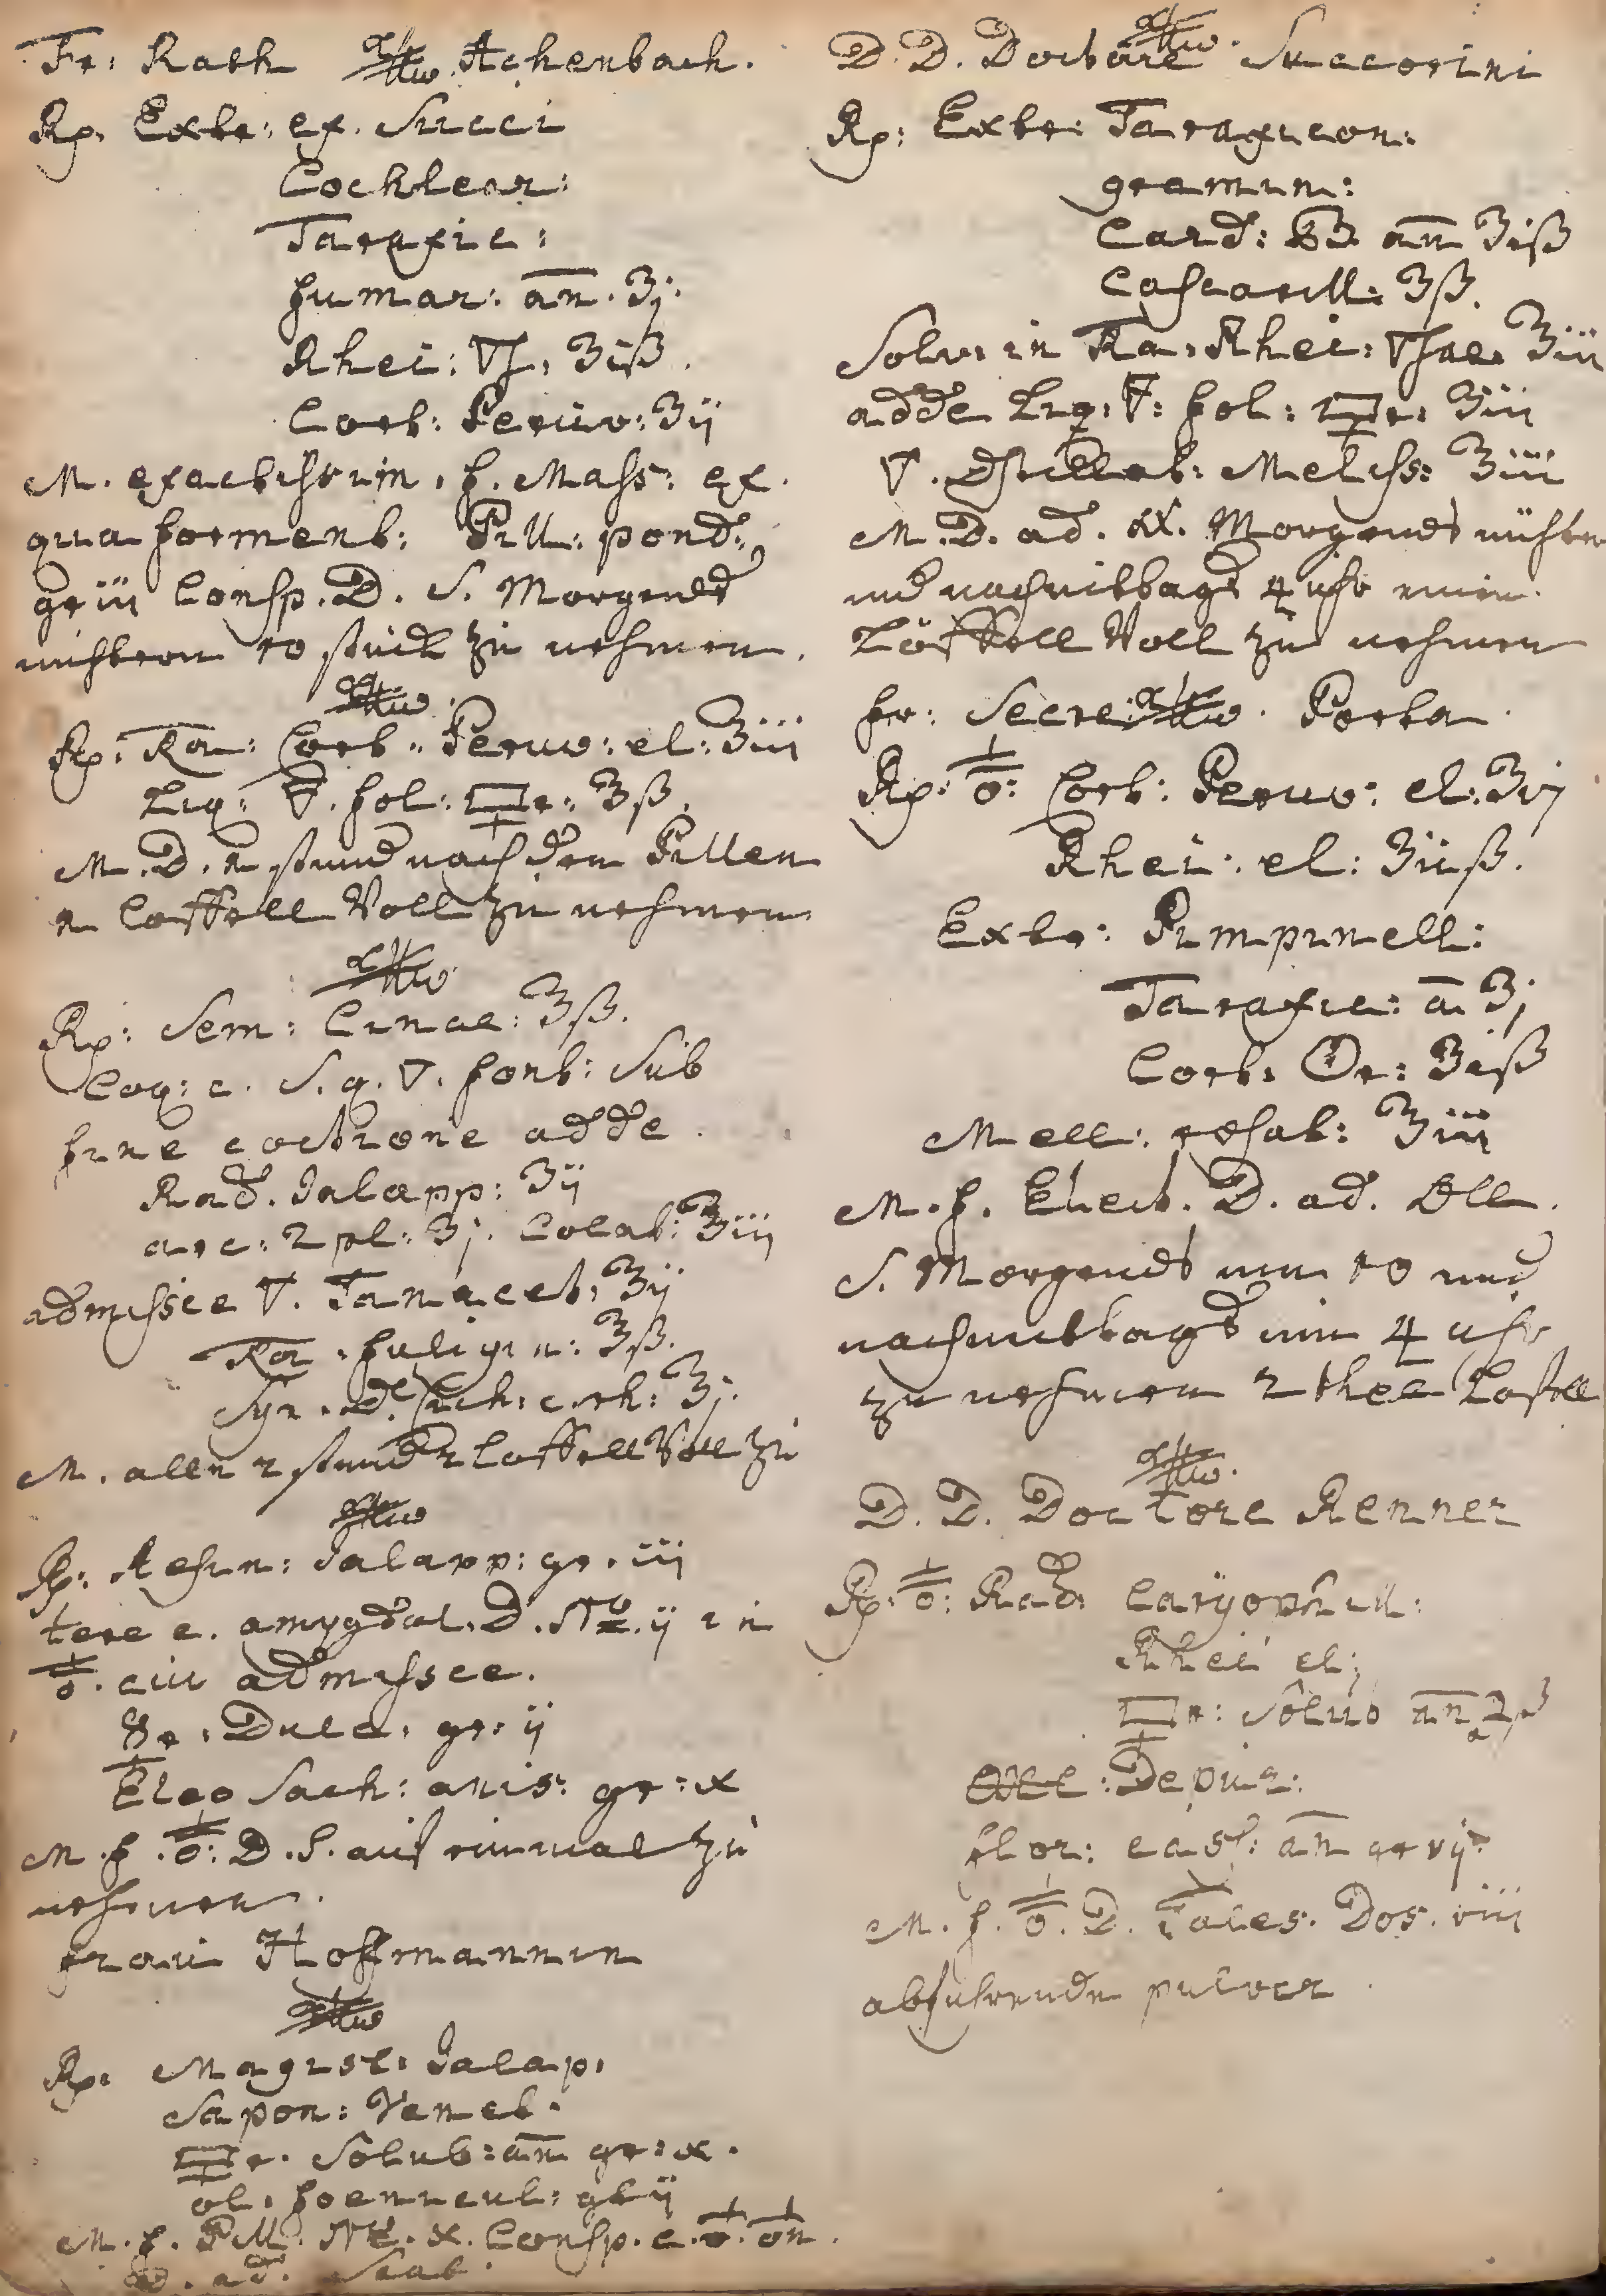 Fr: Rath Achenbach.
Rp. Extr: ex. Succi
Cochlear:
Taraxic:
fumar: an. ʒj.
Rhei: ʒiß.
Cort: Peruv: ʒij
M. exactissim. f. Mass: ex.
qua forment: Pill: pond:
gr iii Consp. D. S. Morgends
nüchtern 10 stück zu nehmen.
Rp. Cort: Peruv: el: ℥iii
Liq: fol: ℥ß.
M. D. 1 stund nach den Pillen
1 Loffell Voll zu nehmen
Rp: Sem: Cinae: ℥ß.
Coq: c. S. q. ▽. font: Sub
fine coctione adde.
Rad. Jalapp: ʒij
arc: 2pl: ʒj. Colat: ℥iij
admissce ▽. Tanacet: ℥ij
fuligin: ℥ß.
Syr. de Cich: c. rh: ℥j.
M. allen 2 stund 2 Loffell Voll zu
Rp. Resin: Jalapp: gr. iij
tere c. amygdal. D. No. ij in
cui admissce.
☿. Dulc. gr: ij
Eleo Sach: anis: gr: x
M. f. D. S. auf einmal zu
nehmen.
frau Hoffmannin
Rp. Magist: Jalap.
Sapon: Venet.
Solub: an gr: x.
ol. foenicul: gtt ij
M. f. Pill. No. x. Consp. c.
D. ad. Scat.
D. D. Doctore Succorini
Rp: Extr: Taraxicon:
gramin:
Card: B. an ʒiß
Cascarill: ʒß.
Solv. in Rhei: ℥iii
adde Liq: fol: ℥iii
▽. Destillat: Meliss: ℥iii
M. D. ad. Morgends nüchtern
und nachmittags 4 uhr einen
Löffell Voll zu nehmen
Hr: Secret. Porta.
Rp: Cort: Peruv: el: ʒvj
Rhei: el: ʒiiß.
Extr: Pimpinell:
Taraxic: a ʒj
Cort: Or: ʒiß
Mell: rosat: ℥iii
M. f. Elect. D. ad. Oll.
S. Morgends um 10 und
nachmittags um 4 uhr
zu nehmen 2 thee Loffell
D. D. Doctore Renner
Rp: Rad. Caryophill:
Rhei el:
Solub an ʒß
Depur:
flor: cass: an gr vij
M. f. D. Tales. Dos. viii
abfuhrende pulver.